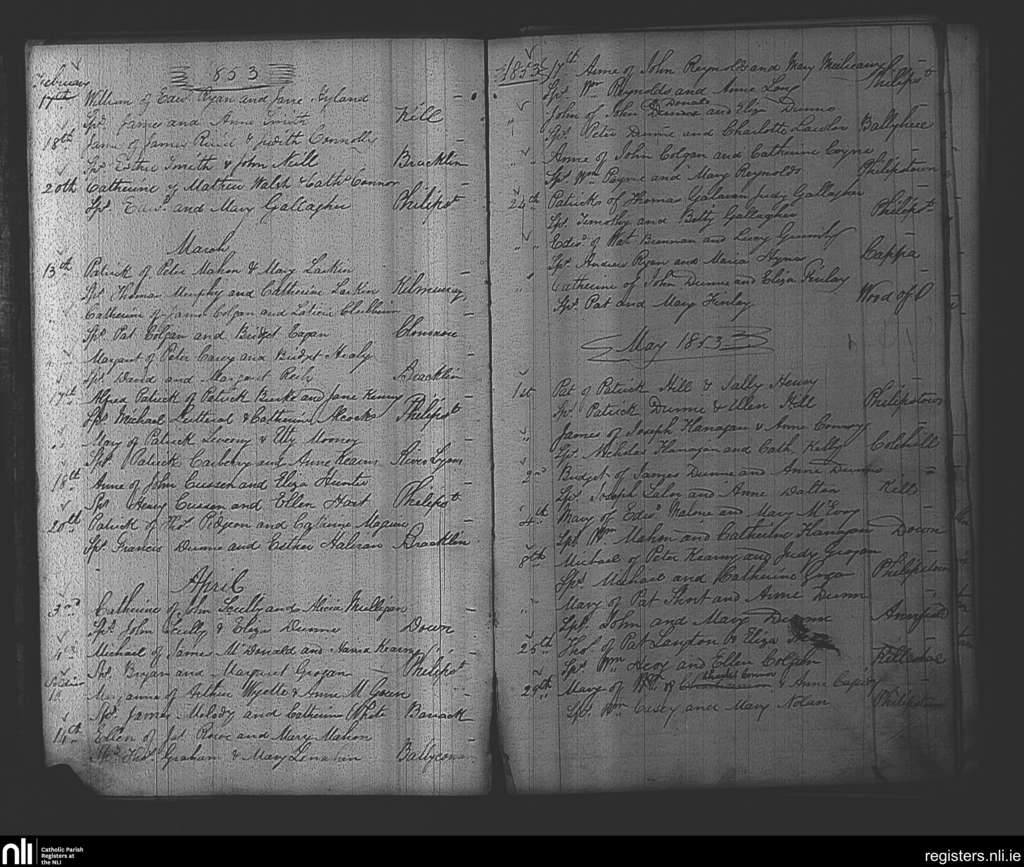 1853
February
17th William of Edwd Ryan and Jane Hyland
Sps. James and Anne Smith Kill
18th Jane of James Reid & Judith Connolly
Sps. Esther Smith & John Neill Bracklin
20th Catherine of Mathew Walsh & Cathe Connor
Sps. Edwd and Mary Gallagher Philipst
March
13th Patrick of Peter Mahon & Mary Larkin
Sps. Thomas Murphy and Catherine Larkin Kilmurray
Catherine of James Colgan and
Sps. Pat Colgan and Bridget Eagan Clonmore
Margaret of Peter Carey and Bridget Healy
Sps. David and Margaret Bracklin
17th Alfred Patrick of Patrick Burke and Jane Kenny
Sps. Michael and Catherine Philipst
Mary of Patrick & Elly Mooney
Sps. Patrick Carbery and Anne Kearns River Lyons
18th Anne of John Cussen and Eliza Hunter
Sps. Henry Cussen and Ellen Hart Philipst
20th Patrick of Thos. Pidgeon and Catherine Maguire
Sps. Francis Dunne and Esther Halvran Bracklin
April
3rd Catherine of John Scully and Alicia Mulligan
Sps. John Scully & Eliza Dunne Down
4th Michael of James McDonald and Maria Kearns
Sps. Bryan and Margaret Grogan Philipst
of Arthur and Anne
Sps. James Melody and Catherine White Banack
14th Ellen of Jas. and Mary Mahon
Sps. Thos. Graham & Mary Lenahin Ballycom
1853 17th Anne of John Reynolds and Mary
Sps. Wm Reynolds and Anne Long Philipst
John of John Donald and Eliza Dunne
Sps. Peter Dunne and Charlotte Lawlor
Anne of John Colgan and Catherine Coyne
Sps. Wm Payne and Mary Reynolds Philipstown
24th Patrick of Thomas Galavan Judy Gallagher
Sps. Timothy and Betty Gallagher Philipst
Edwd of Wat Brennan and Lucy
Sps. Andrew Ryan and Maria Hynes Cappa
Catherine of John Dunne and Eliza Finlay
Sps. Pat and Mary Finlay Wood of O
May 1853
1st Pat of Patrick Hill & Sally Henry
Sps. Patrick Dunne & Ellen Hill Philipstown
James of Joseph Flanagan & Anne Conroy
Sps. Nicholas Flanagan and Cath Kelly Colehill
2nd Bridget of James Dunne and Anne Dunne
Sps. Joseph Lalor and Anne Dalton Kill
4th Mary of Edwd Malone and Mary McEvoy
Sps. Wm Mahon and Catherine Flanagan Down
8th Michael of Peter Kearns and Judy Grogan
Sps. Michael and Catherine Philipstown
Mary of Pat Short and Anne Dunn
Sps. John and Mary Dunne Annfield
25th Thos. of Pat Langton & Eliza
Sps. Wm and Ellen Colgan
29th Mary of Connor & Anne Casey
Sps. Wm Casey and Mary Nolan Philipstown
nli
Catholic Parish
Registers at
the NLI
registers.nli.ie